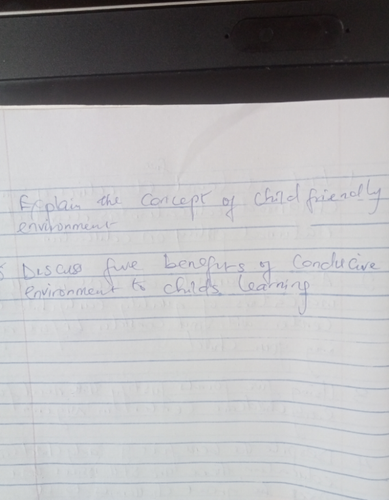 Explain the concept of child friendly
environment
Discuss five benefits of conducive
environment to childs learning